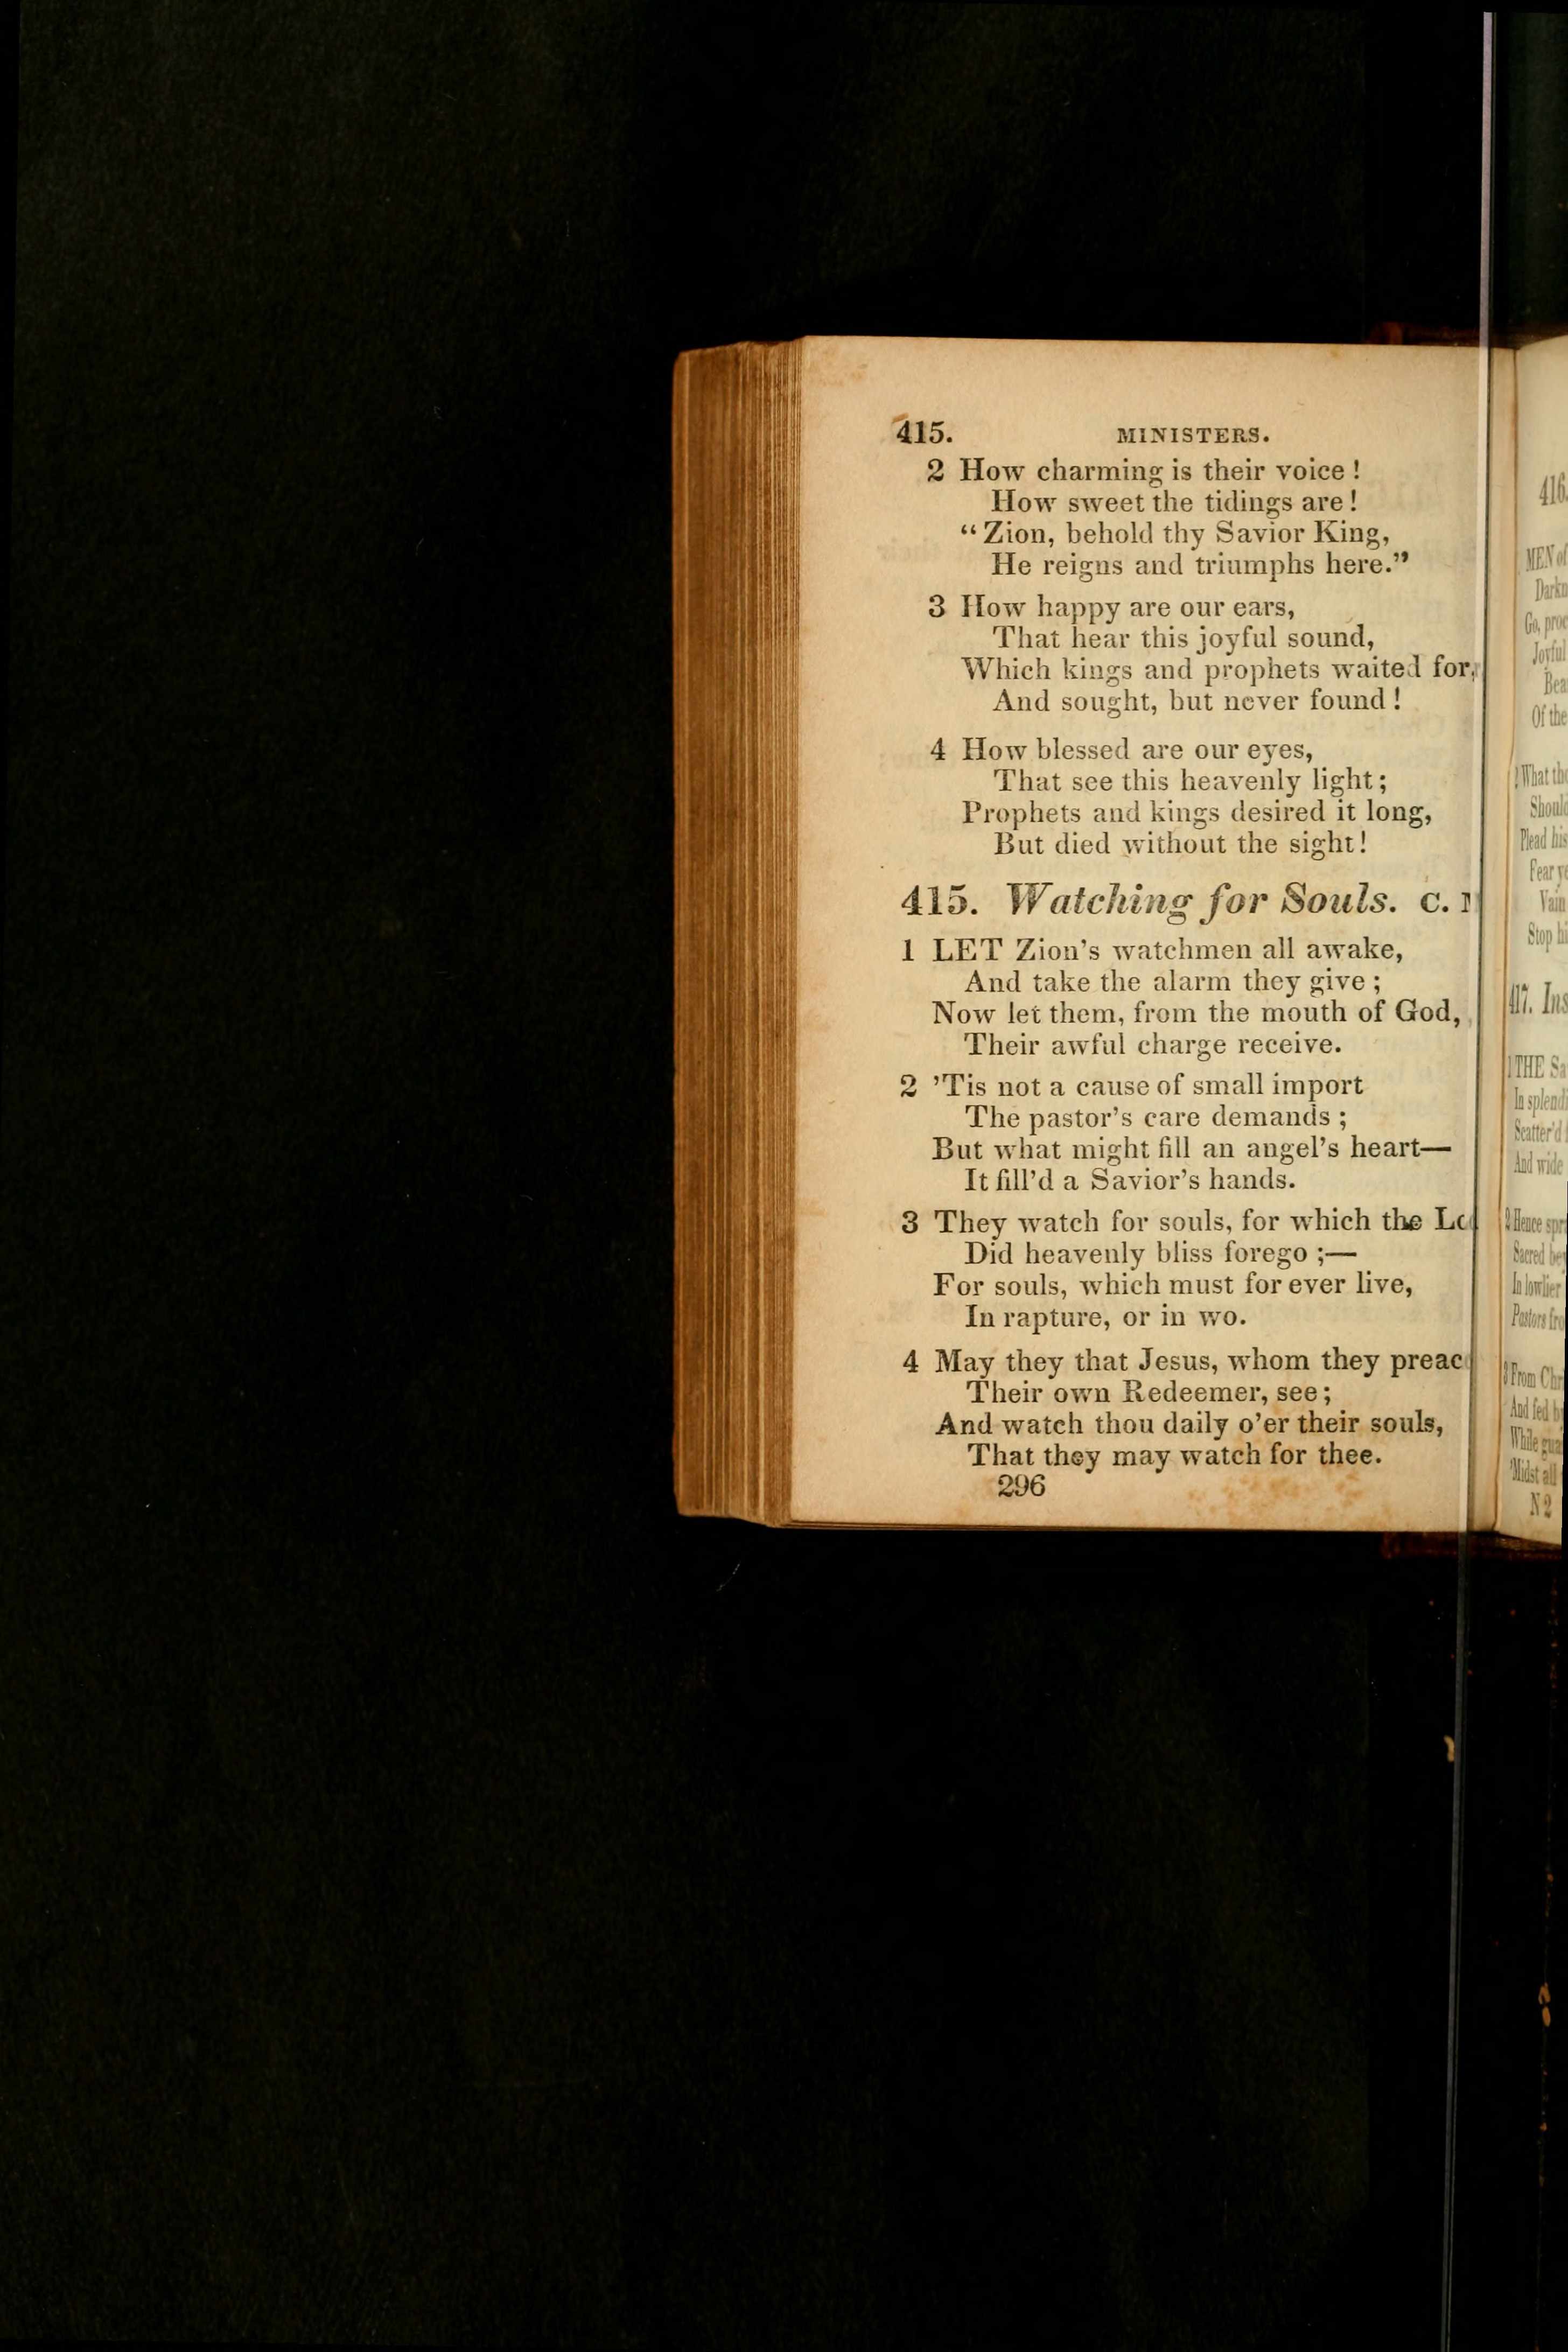 415. MINISTERS.
2 How charming is their voice !
How sweet the tidings are !
“ Zion, behold thy Savior King,
He reigns and triumphs here.”
3 How happy are our ears,
That hear this joyful sound,
Which kings and prophets waited for,
And sought, but never found !
4 How blessed are our eyes,
That see this heavenly light ;
Prophets and kings desired it long,
But died without the sight !
415. Watching for Souls. C.
1 LET Zion’s watchmen all awake,
And take the alarm they give ;
Now let them, from the mouth of God,
Their awful charge receive.
2 ’Tis not a cause of small import
The pastor’s care demands ;
But what might fill an angel’s heart—
It fill’d a Savior’s hands.
3 They watch for souls, for which the
Did heavenly bliss forego ;—
For souls, which must for ever live,
In rapture, or in wo.
4 May they that Jesus, whom they preac
Their own Redeemer, see ;
And watch thou daily o’er their souls,
That they may watch for thee.
296
416.
MEN of
Go, proc
Joyful
Of the
What
Plead his
Fear
Vain
Stop
417.
THE
In
Scatter’d
And wide
Hence
Sacred
In lowlier
Pastors
From
And fed
While
’Midst all
N 2